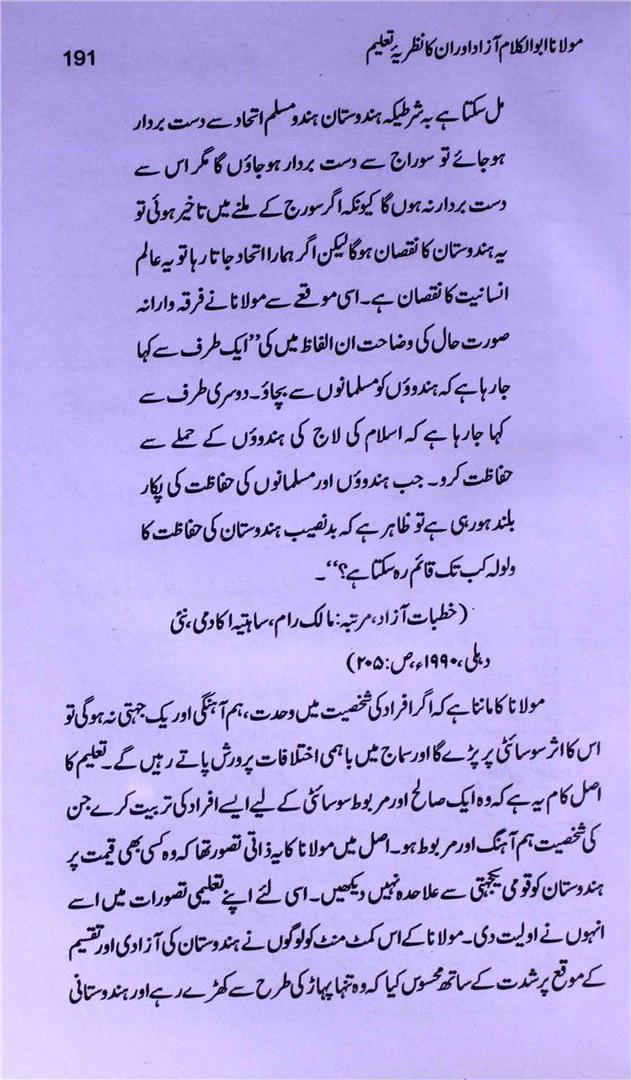 مولانا ابوالکلام آزاد اور ان کا نظریۂ تعلیم
191
مل سکتا ہے بہ شرطیکہ ہندوستان ہندو مسلم اتحاد سے دست بردار
ہو جائے تو سوراج سے دست بردار ہو جاؤں گا مگر اس سے
دست بردار نہ ہوں گا کیونکہ اگر سورج کے ملنے میں تاخیر ہوئی تو
یہ ہندوستان کا نقصان ہوگا لیکن اگر ہمارا اتحاد جاتا رہا تو یہ عالم
انسانیت کا نقصان ہے۔ اسی موقعے سے مولانا نے فرقہ وارانہ
صورت حال کی وضاحت ان الفاظ میں کی ”ایک طرف سے کہا
جا رہا ہے کہ ہندوؤں کو مسلمانوں سے بچاؤ۔ دوسری طرف سے
کہا جا رہا ہے کہ اسلام کی لاج کی ہندوؤں کے حملے سے
حفاظت کرو۔ جب ہندوؤں اور مسلمانوں کی حفاظت کی پکار
بلند ہو رہی ہے تو ظاہر ہے کہ بدنصیب ہندوستان کی حفاظت کا
ولولہ کب تک قائم رہ سکتا ہے؟“۔
(خطبات آزاد، مرتبہ: مالک رام، ساہتیہ اکادمی، نئی
دہلی، ۱۹۹۰ء، ص: ۲۰۵)
مولانا کا ماننا ہے کہ اگر افراد کی شخصیت میں وحدت، ہم آہنگی اور یک جہتی نہ ہوگی تو
اس کا اثر سوسائٹی پر پڑے گا اور سماج میں باہمی اختلافات پرورش پاتے رہیں گے۔ تعلیم کا
اصل کام یہ ہے کہ وہ ایک صالح اور مربوط سوسائٹی کے لیے ایسے افراد کی تربیت کرے جن
کی شخصیت ہم آہنگ اور مربوط ہو۔ اصل میں مولانا کا یہ ذاتی تصور تھا کہ وہ کسی بھی قیمت پر
ہندوستان کو قومی یکجہتی سے علاحدہ نہیں دیکھیں۔ اسی لئے اپنے تعلیمی تصورات میں اسے
انہوں نے اولیت دی۔ مولانا کے اس کمٹ منٹ کو لوگوں نے ہندوستان کی آزادی اور تقسیم
کے موقع پر شدت کے ساتھ محسوس کیا کہ وہ تنہا پہاڑ کی طرح سے کھڑے رہے اور ہندوستانی